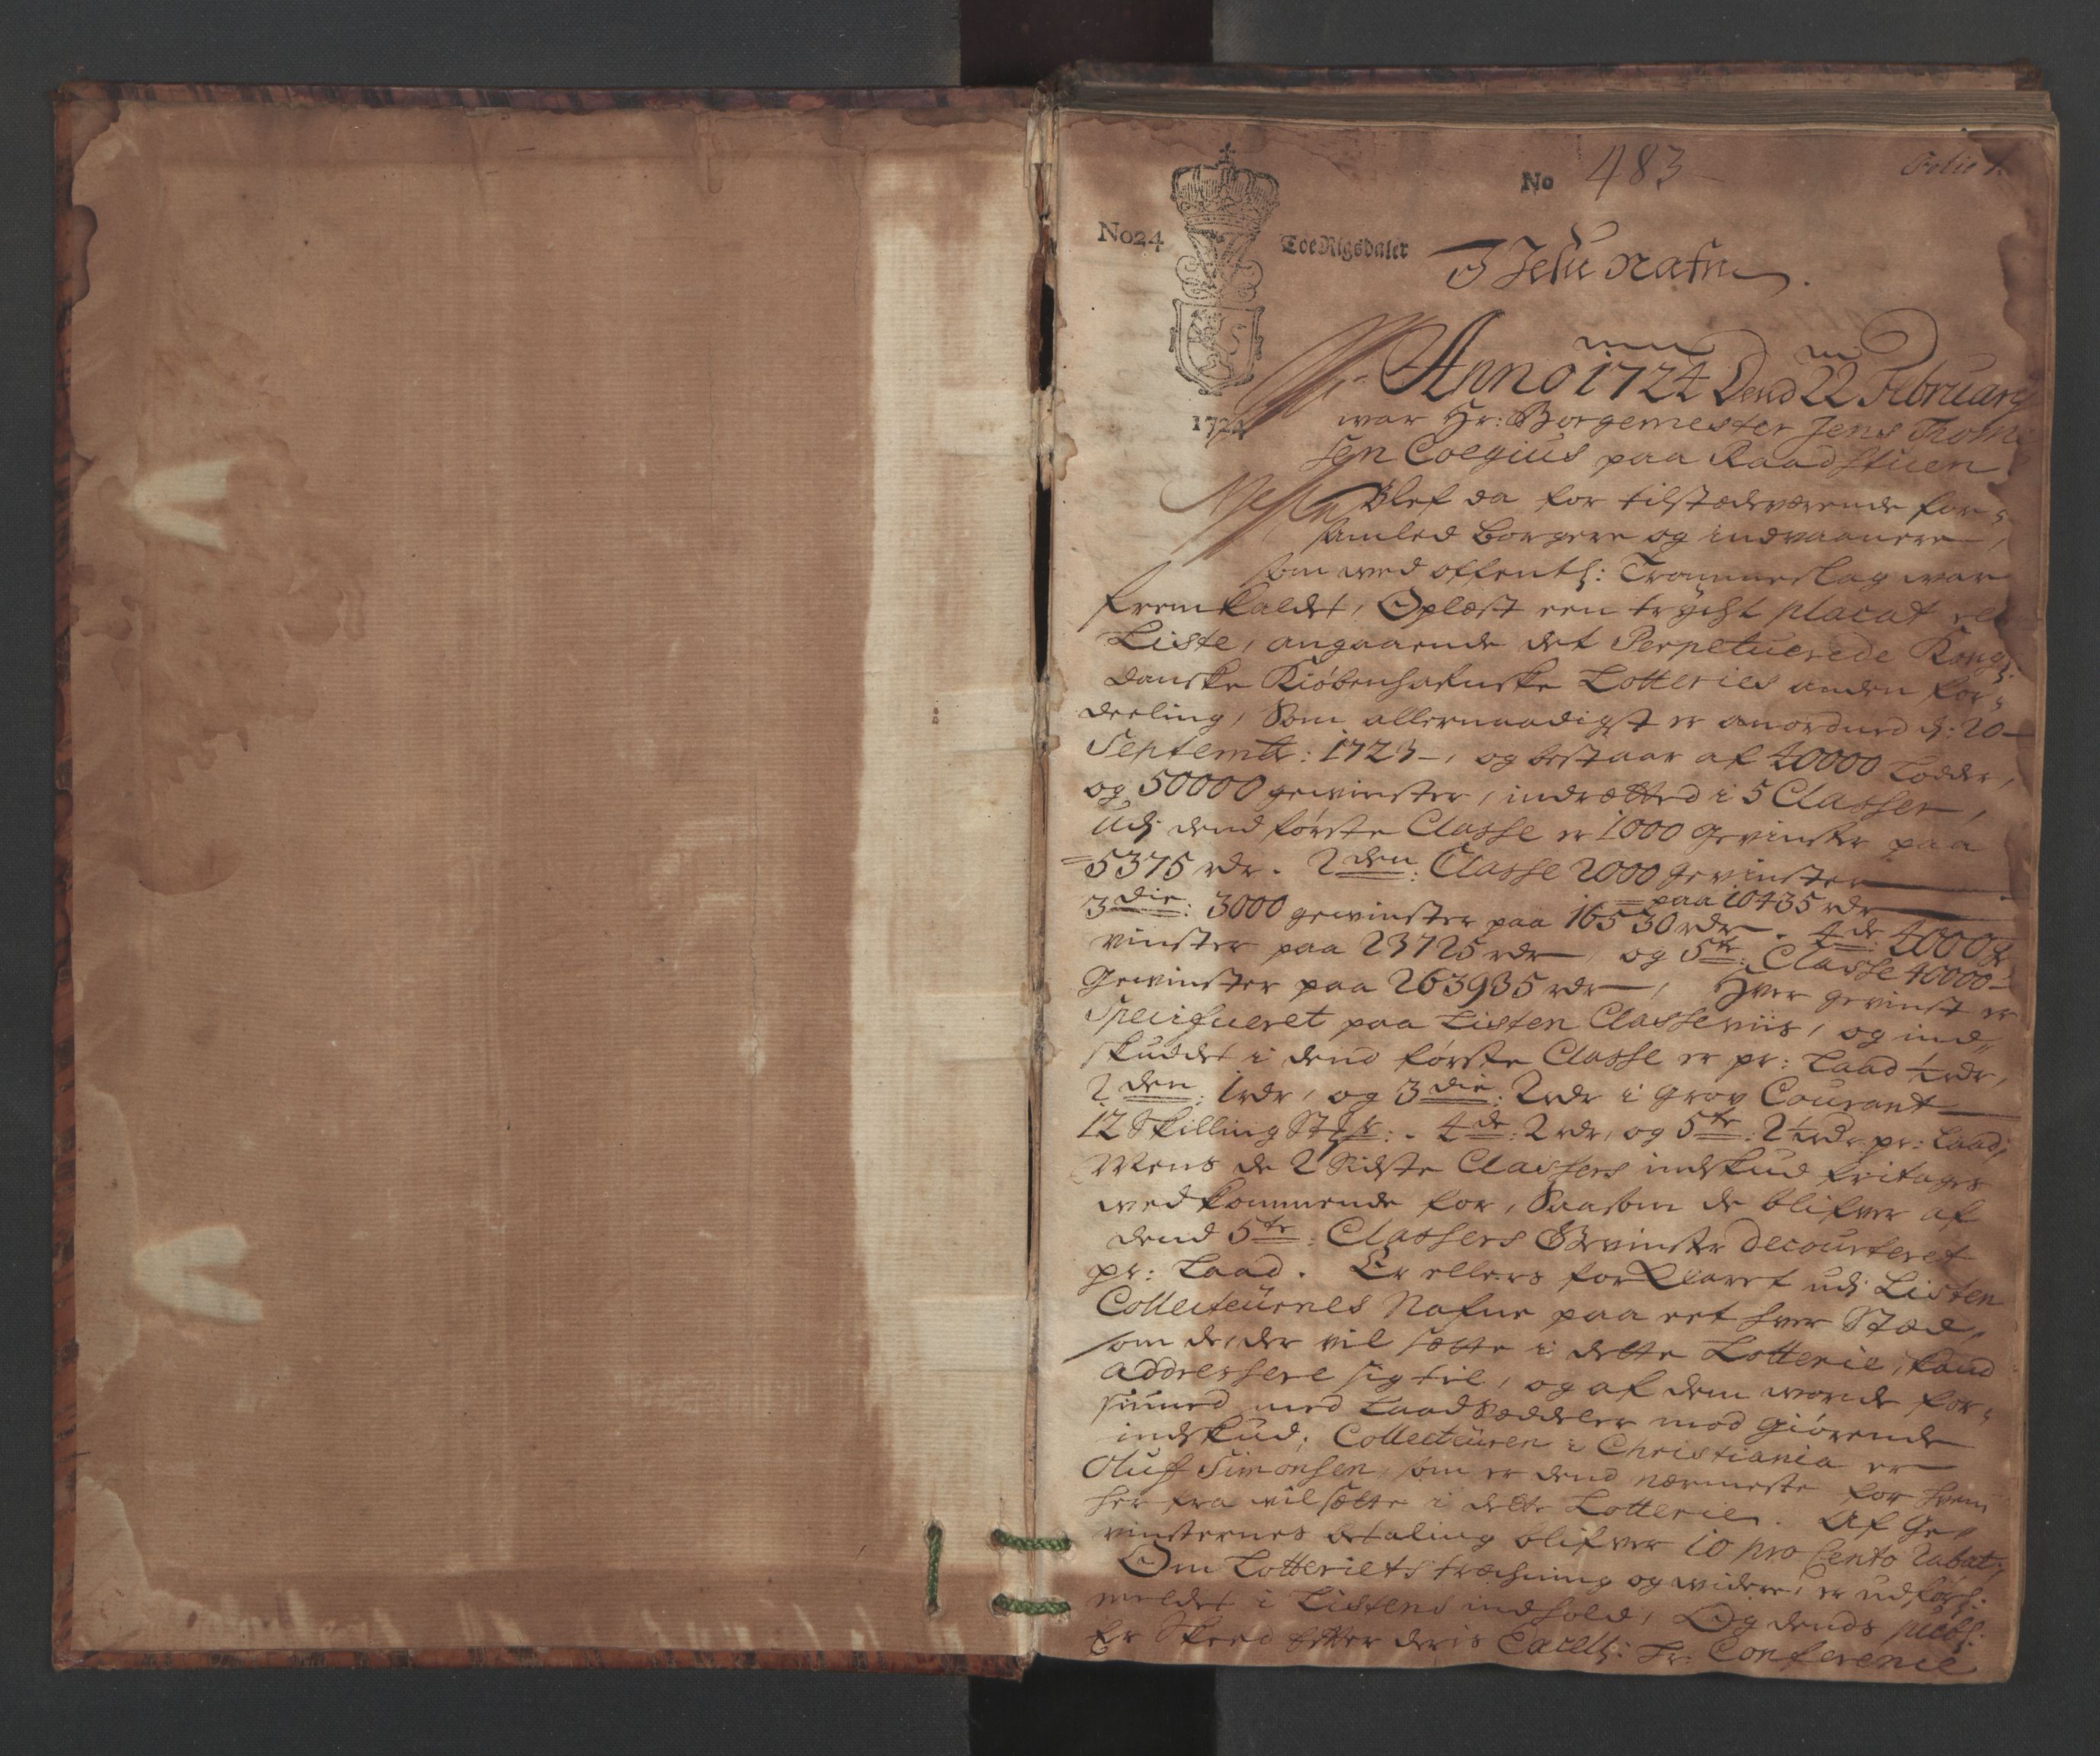 No 483
Folio 1.
No 24
Toe Rigsdaler
I Jesu Nafn.
Anno 1724 Dend 22 February
1724
war Hr: Borgemester Jens Thom
sen Coegius paa Raadstuen
Blef da for tilstædeværende for-
samled borgere og indvaanere,
som wed offentl: Trommeslag war
fremkaldet, Oplæst een trycht placat
Liste, angaaende det Perpetuerede Kongl:
danske Kiøbenhafnske Lotteries anden for-
deeling, Som allernaadigst er anordned d: 20
Septembr: 1723, og bestaar af 40000 Lodder,
og 50000 gewinster, indrætted i 5 Classer,
Udj dend første Classe er 1000 Gevinster paa
5375 rdr. 2den: Classe 2000 gevinster
= paa 10435 rdr
3die: 3000 gewinster paa 16530 rdr. 4de: 4000 ge-
vinster paa 23725 rdr, og 5te: Classe 40000
Gewinster paa 263935 rdr, Hver gevinst er
Specificeret paa Listen Classeviis, og ind-
skuddet i dend første Classe er pr: Laad ½ rdr,
2den: 1 rdr, og 3die: 2 rdr i Grov Courant
12 Skilling St: 4de: 2 rdr, og 5te: 2½ rdr pr: Laad,
Mens de 2 Sidste Classers indskud fritages
wedkommende for, Saasom de blifver af
dend 5te: Classers Gevinster decourteret
pr: Laad. Er ellers forklaret udj Listen
Collecteurnes Nafne paa eet hver Stæd,
som de, der vil sætte i dette Lotterie, kand
addressere sig til, og af dem worde for-
siuned med Laadsæddeler mod Giørende
indskud; Collecteuren i Christiania er
Oluf Simonsen, som er dend nærmeste for hvem
her fra vil sætte i dette Lotterie. Af Ge-
winsternes betaling blifver 10 pro Cento Rabat,
Om Lotteriets træchning og widere, er udførl:
meldet i Listens indhold, Og dends publ:
Er Skeed efter deris Excell: Hr: Conference